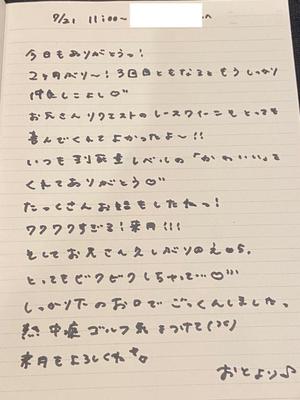 7/21 11:00~
今日もありがとうっ!
2ヶ月ぶり〜!3回目ともなるともうしっかり
仲良しこよし♡
お兄さんリクエストのレースクイーンもとっても
喜んでくれてよかったよ〜!!
いつも致死量レベルの「かわいい」を
くれてありがとう♡
たっくさんお話もしたねっ!
ワクワクすぎる!来月!!!
そしてお兄さん久しぶりのえ
とってもビクビクしちゃって…♡
しっかり下のお口でごっくんしましたっ
熱中症 ゴルフ 気をつけて
来月もよろしくね
おとより♪